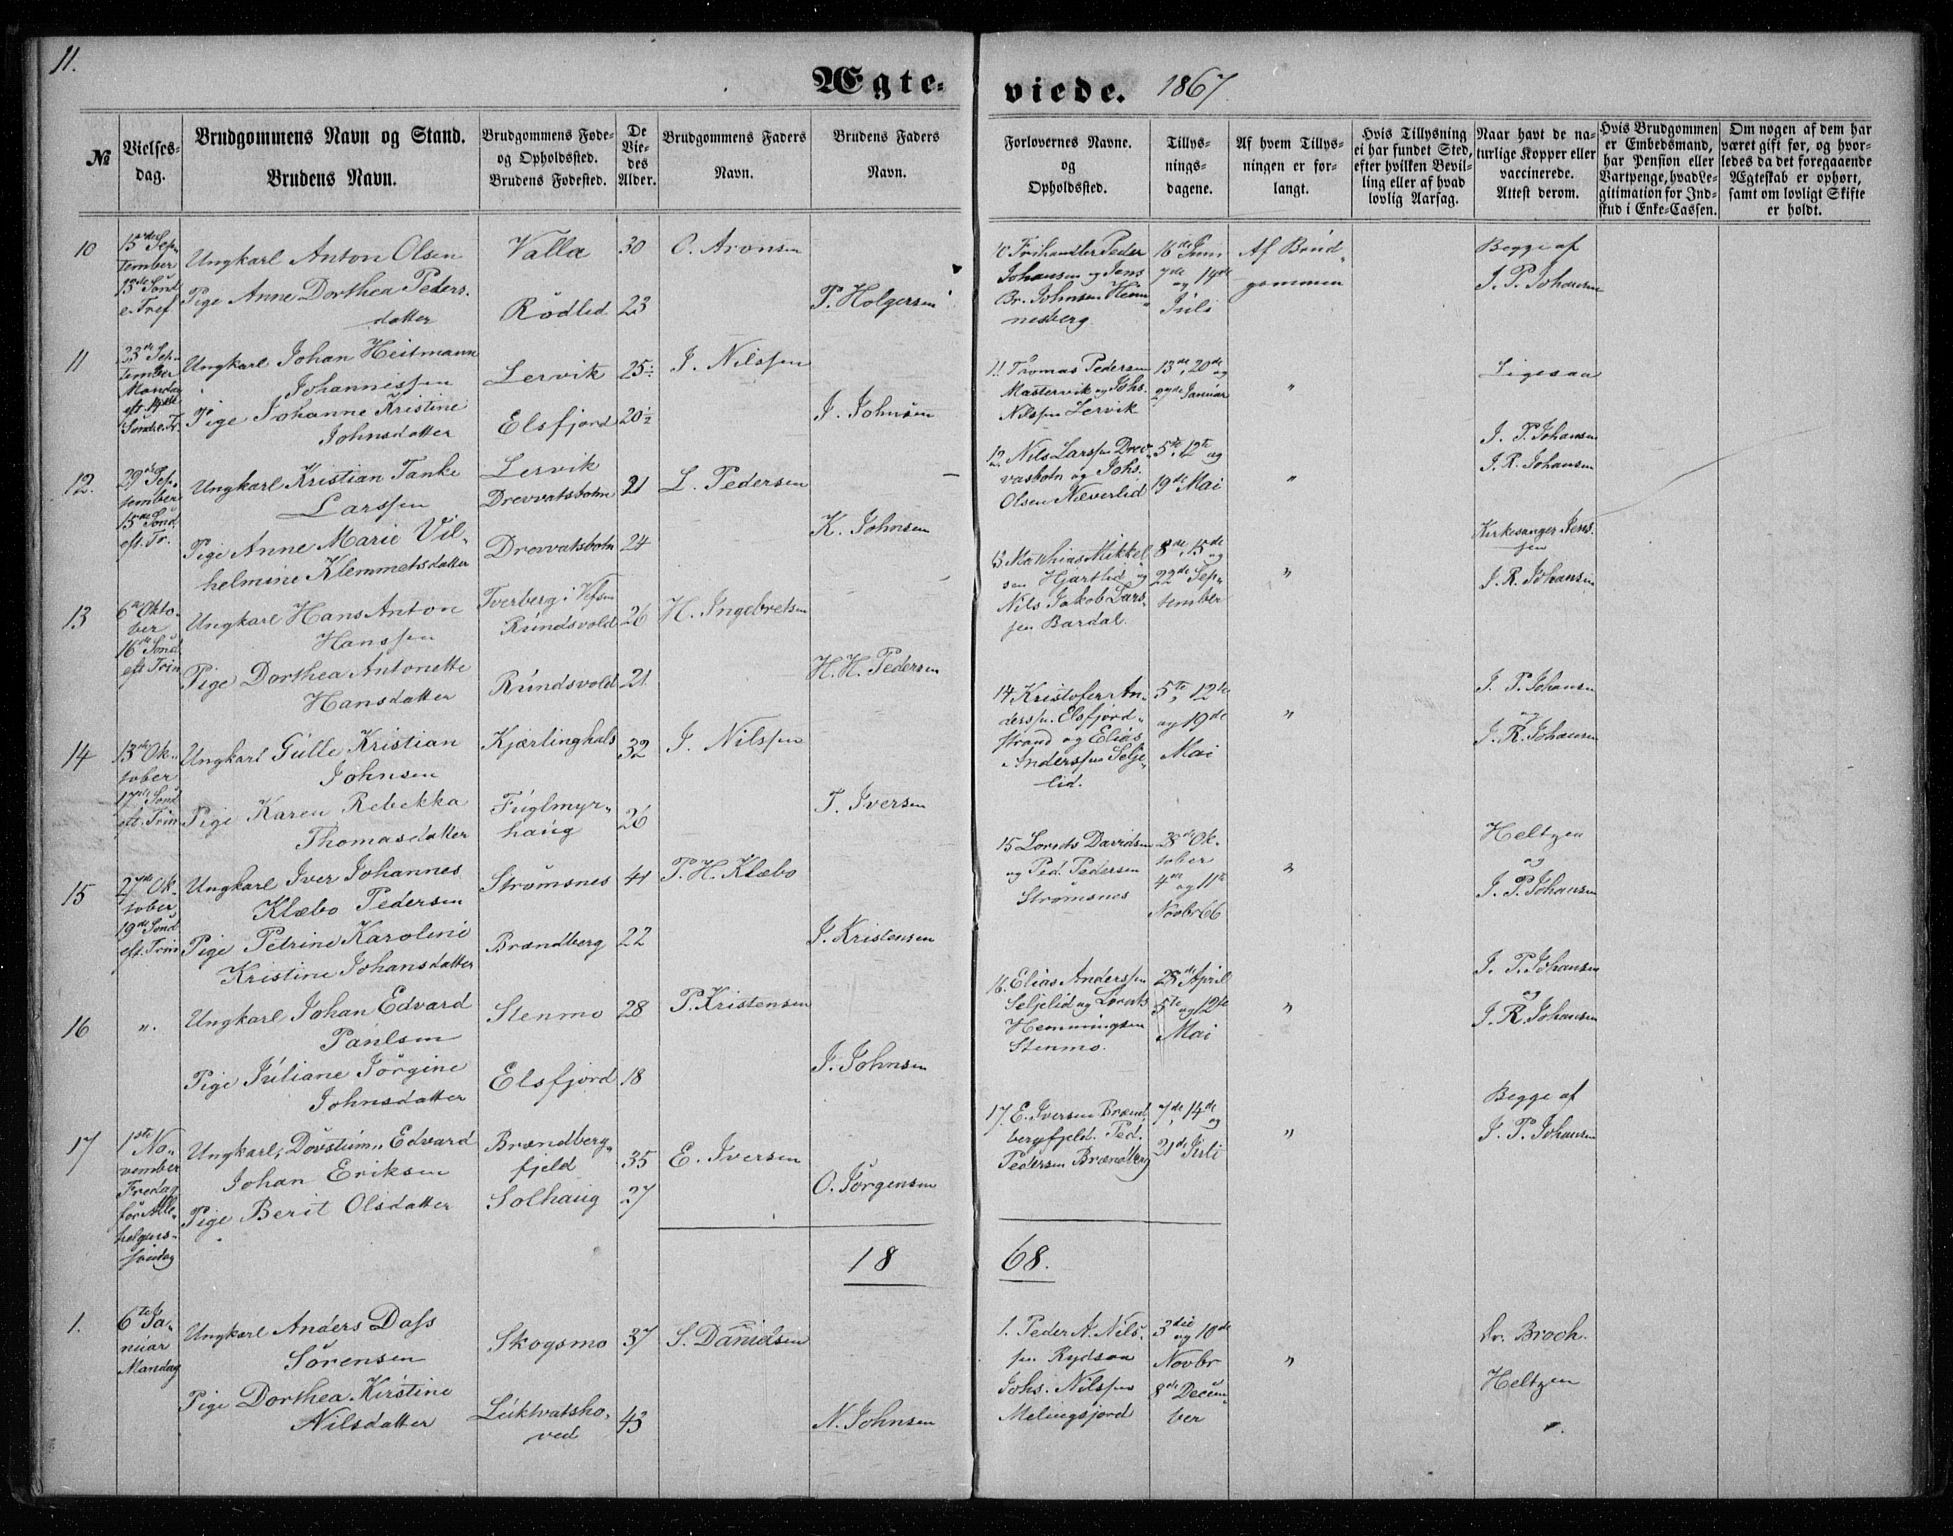 11.
Ægte-
viede. 1867.
№
Vielses-
dag.
Brudgommens Navn og Stand.
Brudens Navn.
Brudgommens Føde-
og Opholdssted.
Brudens Fødested.
De
Vie-
des
Alder.
Brudgommens Faders
Navn.
Brudens Faders
Navn.
Forlovernes Navne.
og
Opholdssted.
Tillys-
nings-
dagene.
Af hvem Tillys-
ningen er for-
langt.
Hvis Tillysning
ei har fundet Sted,
efter hvilken Bevil-
ling eller af hvad
lovlig Aarsag.
Naar havt de na-
turlige Kopper eller
vaccinerede.
Attest derom.
Hvis Brudgommen
er Embedsmand,
har Pension eller
Vartpenge, hvad Le-
gitimation for Ind-
skud i Enke-Cassen.
Om nogen af dem har
været gift før, og hvor-
ledes da det foregaaende
Ægteskab er ophørt,
samt om lovligt Skifte
er holdt.
10
15de Sep-
tember
13de Sønd
e. Tref
Ungkarl Anton Olsen
Pige Anne Dorthea Peders-
datter
Valla
Rödlid
30
23
O. Aronsen
P. Holgersen
10 Frihandler Peder
Johansen og Jens
Br. Johnsen Hem-
nesberg
16de Juni
7de og 14de
Juli
Af Brud-
gommen
Begge af
J. P. Johansen
11
23de Sep-
tember
Mandag
Sönd. e. Tr.
Ungkarl Johan Heitmann
Johannissen
Pige Johanne Kristine
Johnsdatter
Lervik
Elsfjord
25½
20½
J. Nilssen
J. Johnsen
11 Thomas Pedersen
Mastervik og Johs.
Nilssen Lervik
13de, 20de og
27de Januar
"
Ligesaa
12.
29de Sep-
tember
15de Sönd
eft. Tr.
Ungkarl Kristian Tanke
Larssen
Pige Anne Marie Vil-
helmine Klemmetsdatter
Lervik
Drevvatsbotn
Drevvatsbotn
21
24
L. Pedersen
K. Johnsen
12. Nils Larssen Drev-
vasbotn og Johs.
Olsen Næverlid
5te, 12te og
19de Mai
"
J. P. Johansen
J. R. Johansen
13
6te Okto-
ber
16de Sönd
eft. Trin
Ungkarl Hans Anton
Hanssen
Pige Dorthea Antonette
Hansdatter
Tverberg i Vefsen
Rundsvold
Rundsvold
26
21
H. Ingebretsen
H. H. Pedersen
13 Mathias Mikkel-
sen Hjartlid og
Nils Jakob Lars-
sen Bardal.
8de, 15de og
22de Sep-
tember
"
Kirkesanger Jens-
sen
J. R. Johansen
14
13de Ok-
tober
17de Sönd
eft. Trin
Ungkarl Gulle Kristian
Johnsen
Pige Karen Rebekka
Thomasdatter
Kjærlinghals
Fuglmyr-
haug
32
26
J. Nilssen
T. Iversen
14 Kristofer An-
derssen Elsfjord-
strand og Elias
Anderssen Selje-
lid.
5te, 12te
og 19de
Mai
"
J. P. Johansen
og
J. R. Johansen
15
27de Ok-
tober
19de Sönd
eft. Trin
Ungkarl Iver Johannes
Klæbo Pedersen
Pige Petrine Karoline
Kristine Johansdatter
Strömsnes
Brændberg
41
22
P. H. Klæbo
J. Kristensen
15 Lorents Davidsen
og Ped. Pedersen
Strömsnes
28de Ok-
tober
4de og 11te
Novbr 66
"
Heltzen
og
J. P. Johansen
16
".
Ungkarl Johan Edvard
Paulsen
Pige Juliane Jörgine
Johnsdatter
Stenmo
Elsfjord
28
18
P. Kristensen
J. Johnsen
16. Elias Anderssen
Seljelid og Lorents
Hemmingsen
Stenmo.
28de April
5te og 12te
Mai
"
J. P. Johansen
og
J. R. Johansen
17
1ste No-
vember
Fredag
för Alle-
helgens-
sondag
Ungkarl, Dövstum, Edvard
Johan Eriksen
Pige Berit Olsdatter
Brændberg-
fjeld
Solhaug
35
27
E. Iversen
O. Jörgensen
17. E. Iversen Brænd-
bergfjeld. Ped.
Pedersen Brændberg
7de, 14de og
21de Juli
"
Begge af
J. P. Johansen
18 68.
1.
6te Ja-
nuar
Mandag
Ungkarl Anders Dass
Sörensen
Pige Dorthea Kirstine
Nilsdatter
Skogsmo
Luktvatsho-
ved
37
43
S. Danielsen
N. Johnsen
1. Peder A. Nils-
sen Rydsaa
Johs. Nilssen
Melingsjord
3die og 10de
Novbr
8de Decem-
ber
"
Dr. Broch.
Heltzen